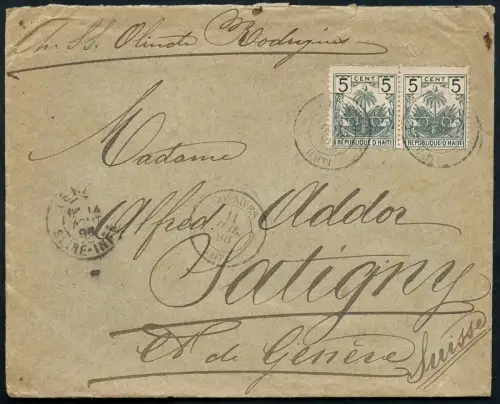 Th. SS. Olinde Rodrigues
5 CENT 5
REPUBLIQUE D'HAITI
5 CENT 5
REPUBLIQUE D'HAITI
HAITI
Madame
Alfred Addor
Satigny
Ct de Genève
Suisse
14
96
SEINE-INF
11
96